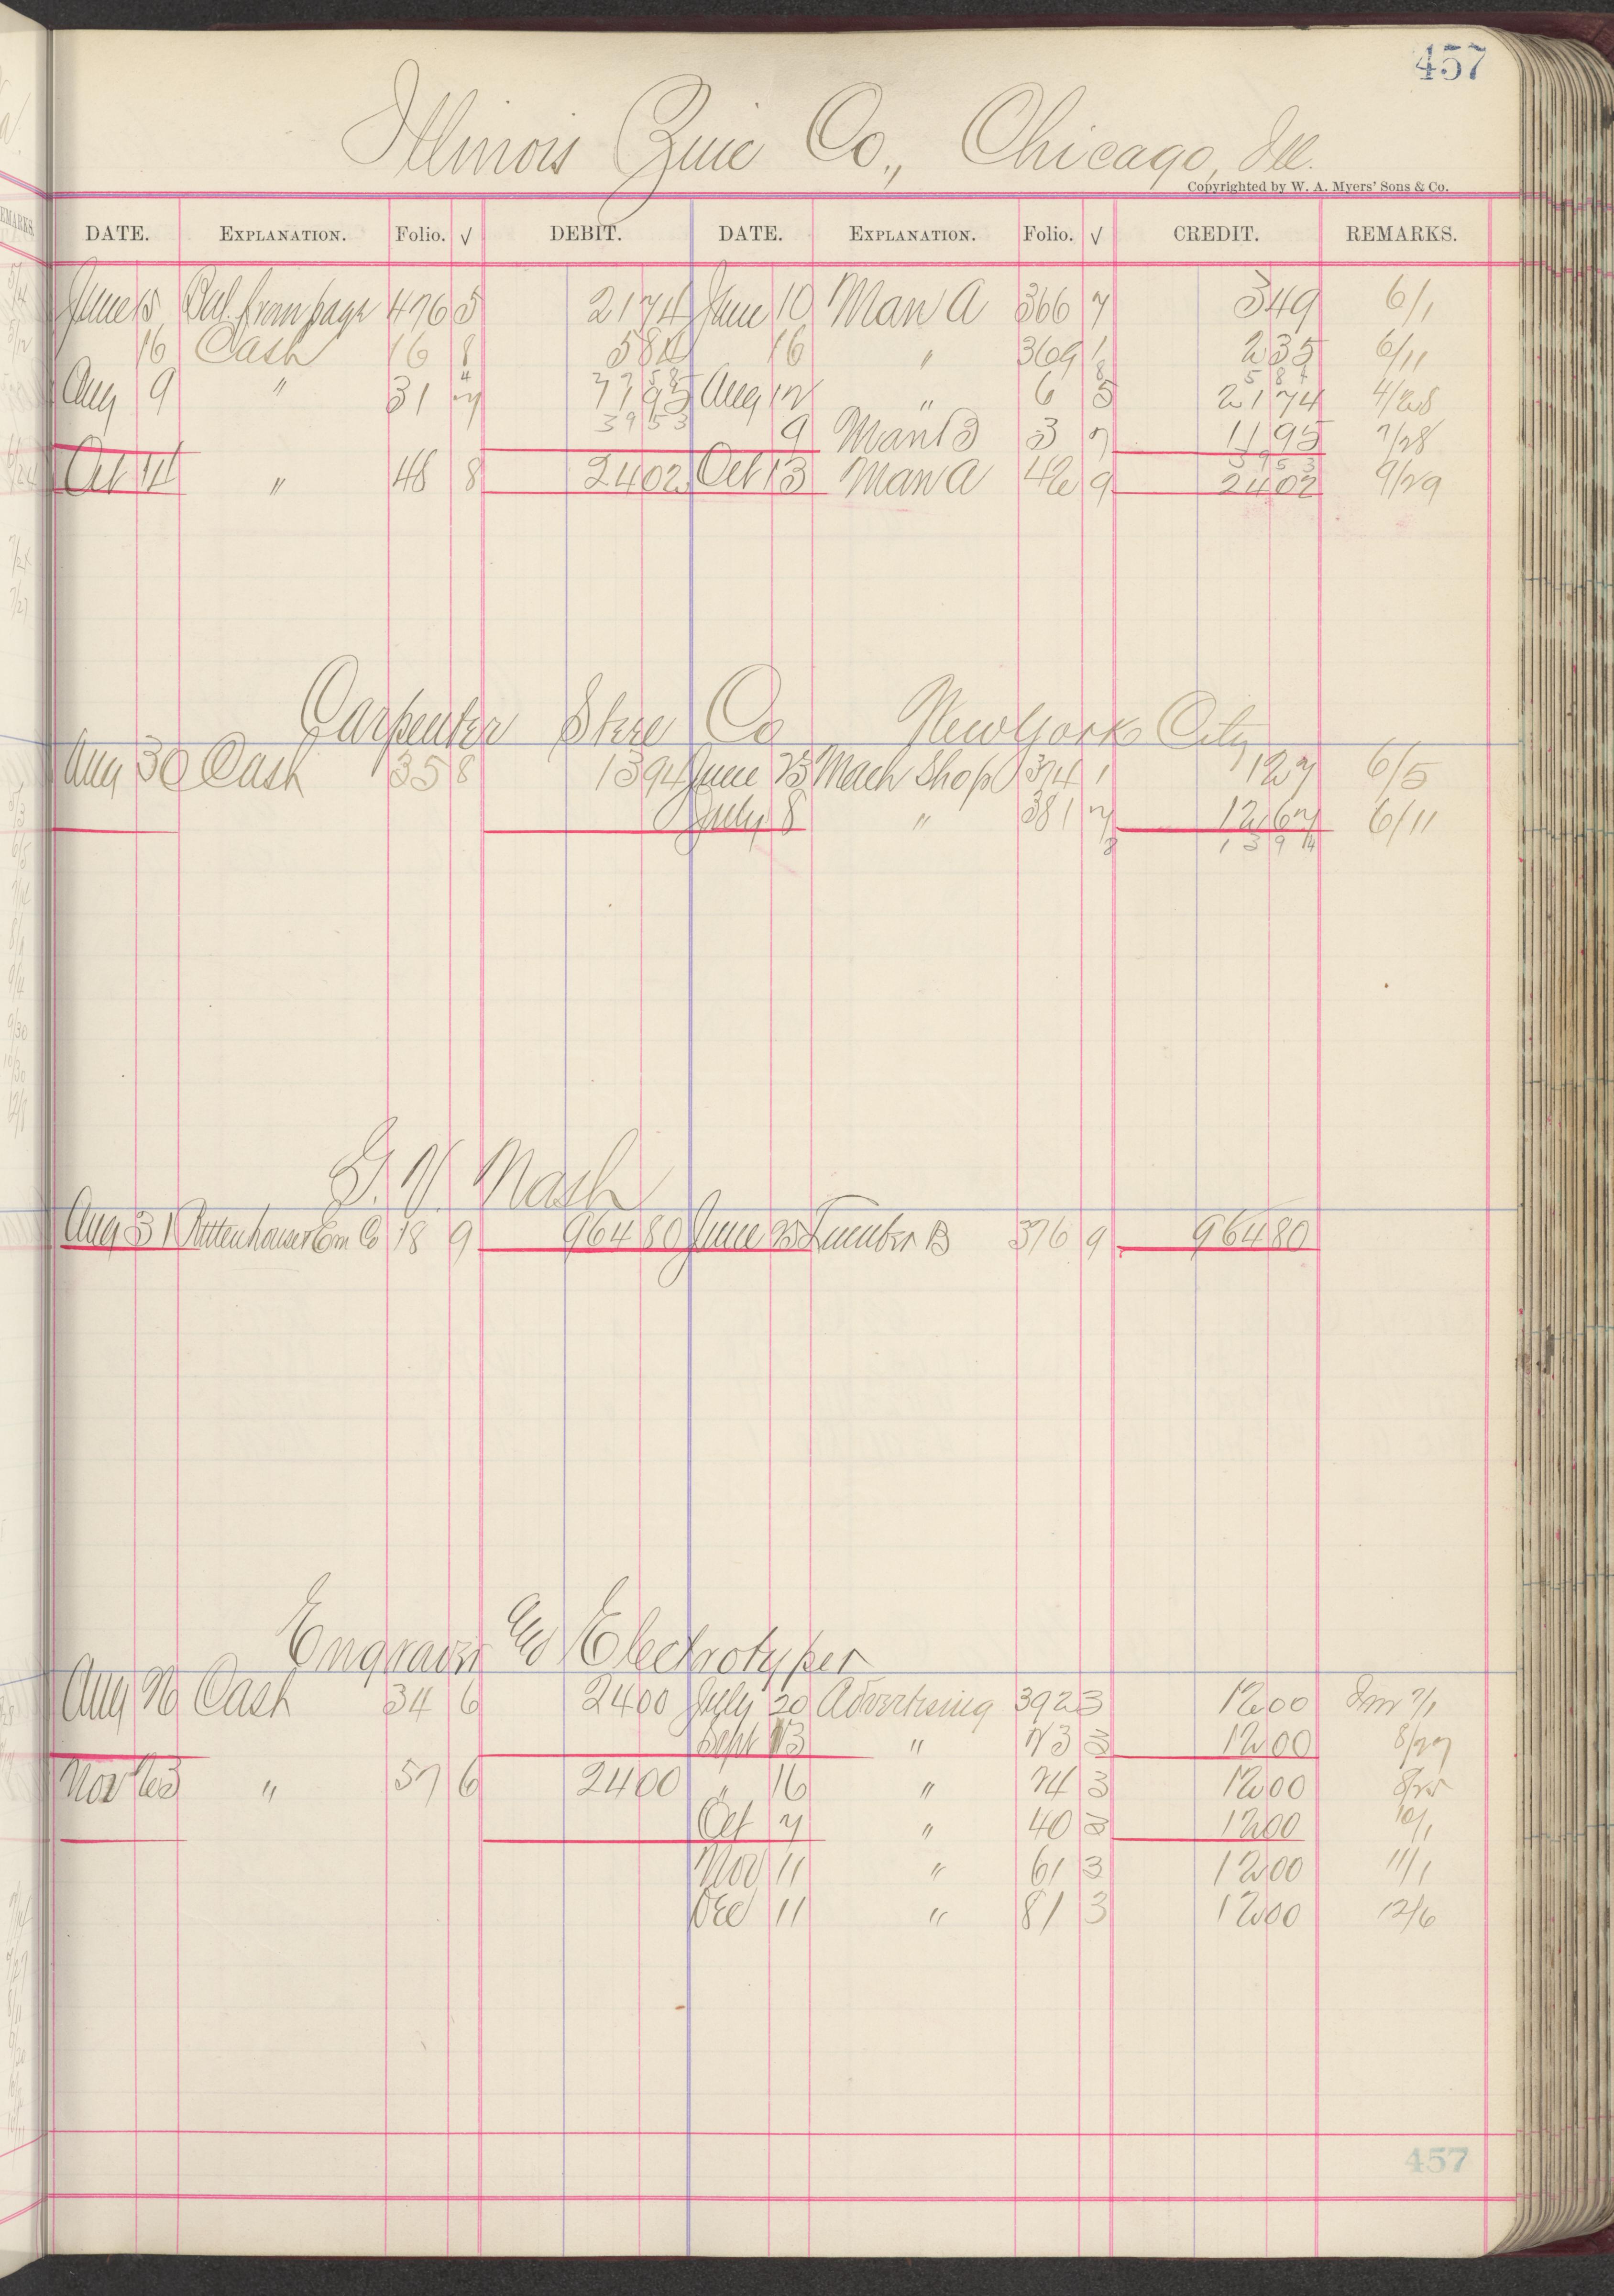 457
Illinois Zinc Co., Chicago, Ill.
Copyrighted by W. A. Myers' Sons & Co.
DATE. EXPLANATION. Folio. √ DEBIT. DATE. EXPLANATION. Folio. √ CREDIT. REMARKS.
June 15 Bal. from page 476 5 2174 June 10 Man A 366 7 349 6/1
16 Cash 16 8 584 16 " 369 1 235 6/11
584
Aug 9 " 31 7 1195 Aug 12 " 6 5 2174 4/28
3953 9 Man B 3 7 1195 7/28
3953
Oct 14 " 48 8 2402 Oct 13 Man A 42 9 2402 9/29
Carpenter Steel Co New York City
Aug 30 Cash 35 8 1394 June 23 Mach Shop 374 1 127 6/5
July 8 " 381 7 1267 6/11
8 1394
G. V. Nash
Aug 31 Rittenhouse Em Co 18 9 964 80 June 23 Lumber B 376 9 964 80
Engraver & Electrotyper
Aug 26 Cash 34 6 2400 July 20 Advertising 392 3 1200 7/1
Sept 13 " 23 3 1200
Nov 23 " 57 6 2400 " 16 " 24 3 1200
Oct 7 " 40 3 1200 10/1
Nov 11 " 61 3 1200 11/1
Dec 11 " 81 3 1200 12/6
457